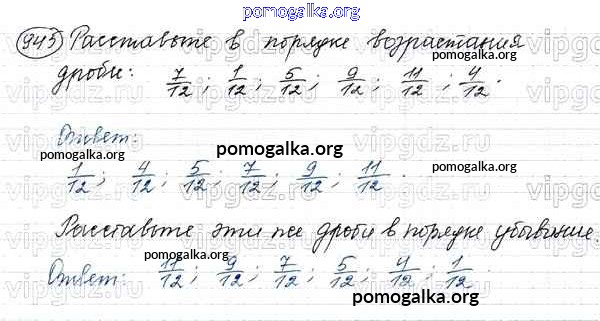 pomogalka.org
945 Расставьте в порядке возрастания
дроби: 7/12; 1/12; 5/12; 9/12; 11/12; 4/12.
pomogalka.org pomogalka.org
vipgdz.ru vipgdz.ru vipgdz.ru
Ответ:
pomogalka.org pomogalka.org pomogalka.org
1/12; 4/12; 5/12; 7/12; 9/12; 11/12.
vipgdz.ru vipgdz.ru vipgdz.ru
Расставьте эти же дроби в порядке убывание.
Ответ: 11/12; 9/12; 7/12; 5/12; 4/12; 1/12.
vipgdz.ru vipgdz.ru vipgdz.ru
pomogalka.org pomogalka.org
pomogalka.org